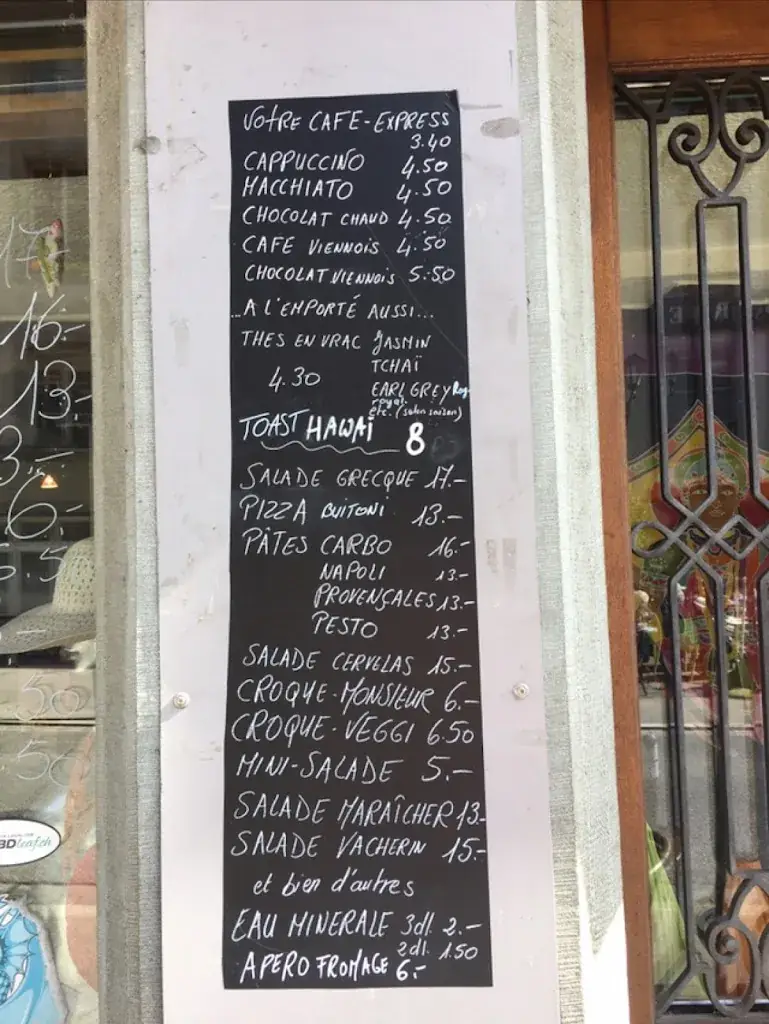 VOTRE CAFE-EXPRESS
3.40
CAPPUCCINO 4.50
MACCHIATO 4.50
CHOCOLAT CHAUD 4.50
CAFE VIENNOIS 4.50
CHOCOLAT VIENNOIS 5.50
...A L'EMPORTÉ AUSSI...
THES EN VRAC JASMIN
TCHAÏ
4.30
EARL GREY
royal
etc. (selon saison)
TOAST HAWAÏ 8
SALADE GRECQUE 17.-
PIZZA BUITONI 13.-
PÂTES CARBO 16.-
NAPOLI 13.-
PROVENÇALES 13.-
PESTO 13.-
SALADE CERVELAS 15.-
CROQUE-MONSIEUR 6.-
CROQUE-VEGGI 6.50
MINI-SALADE 5.-
SALADE MARAÎCHER 13.-
SALADE VACHERIN 15.-
et bien d'autres
EAU MINERALE 3dl. 2.-
2dl. 1.50
APERO FROMAGE 6.-
17.-
16.-
13.-
3.-
6.-
.50
50